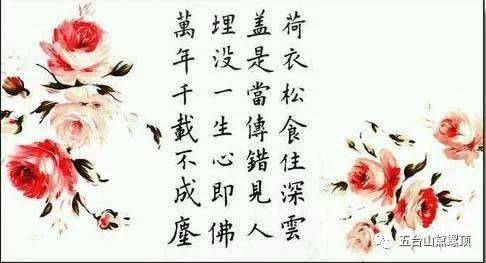 荷衣松食住深雲
盖是當傳錯見人
埋没一生心即佛
萬年千載不成塵
五台山黛螺顶